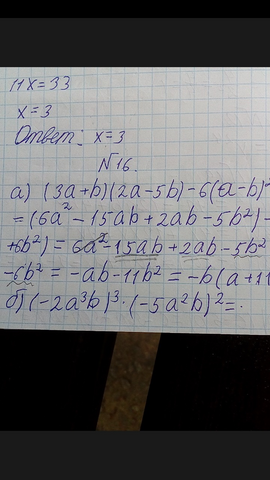 11x=33
x=3
Ответ: x=3
№16.
а) (3a+b)(2a-5b)-6(a-b)²
=(6a²-15ab+2ab-5b²)-
+6b²)=6a²-15ab+2ab-5b²
-6b²=-ab-11b²=-b(a+11
б) (-2a³b)³·(-5a²b)²=